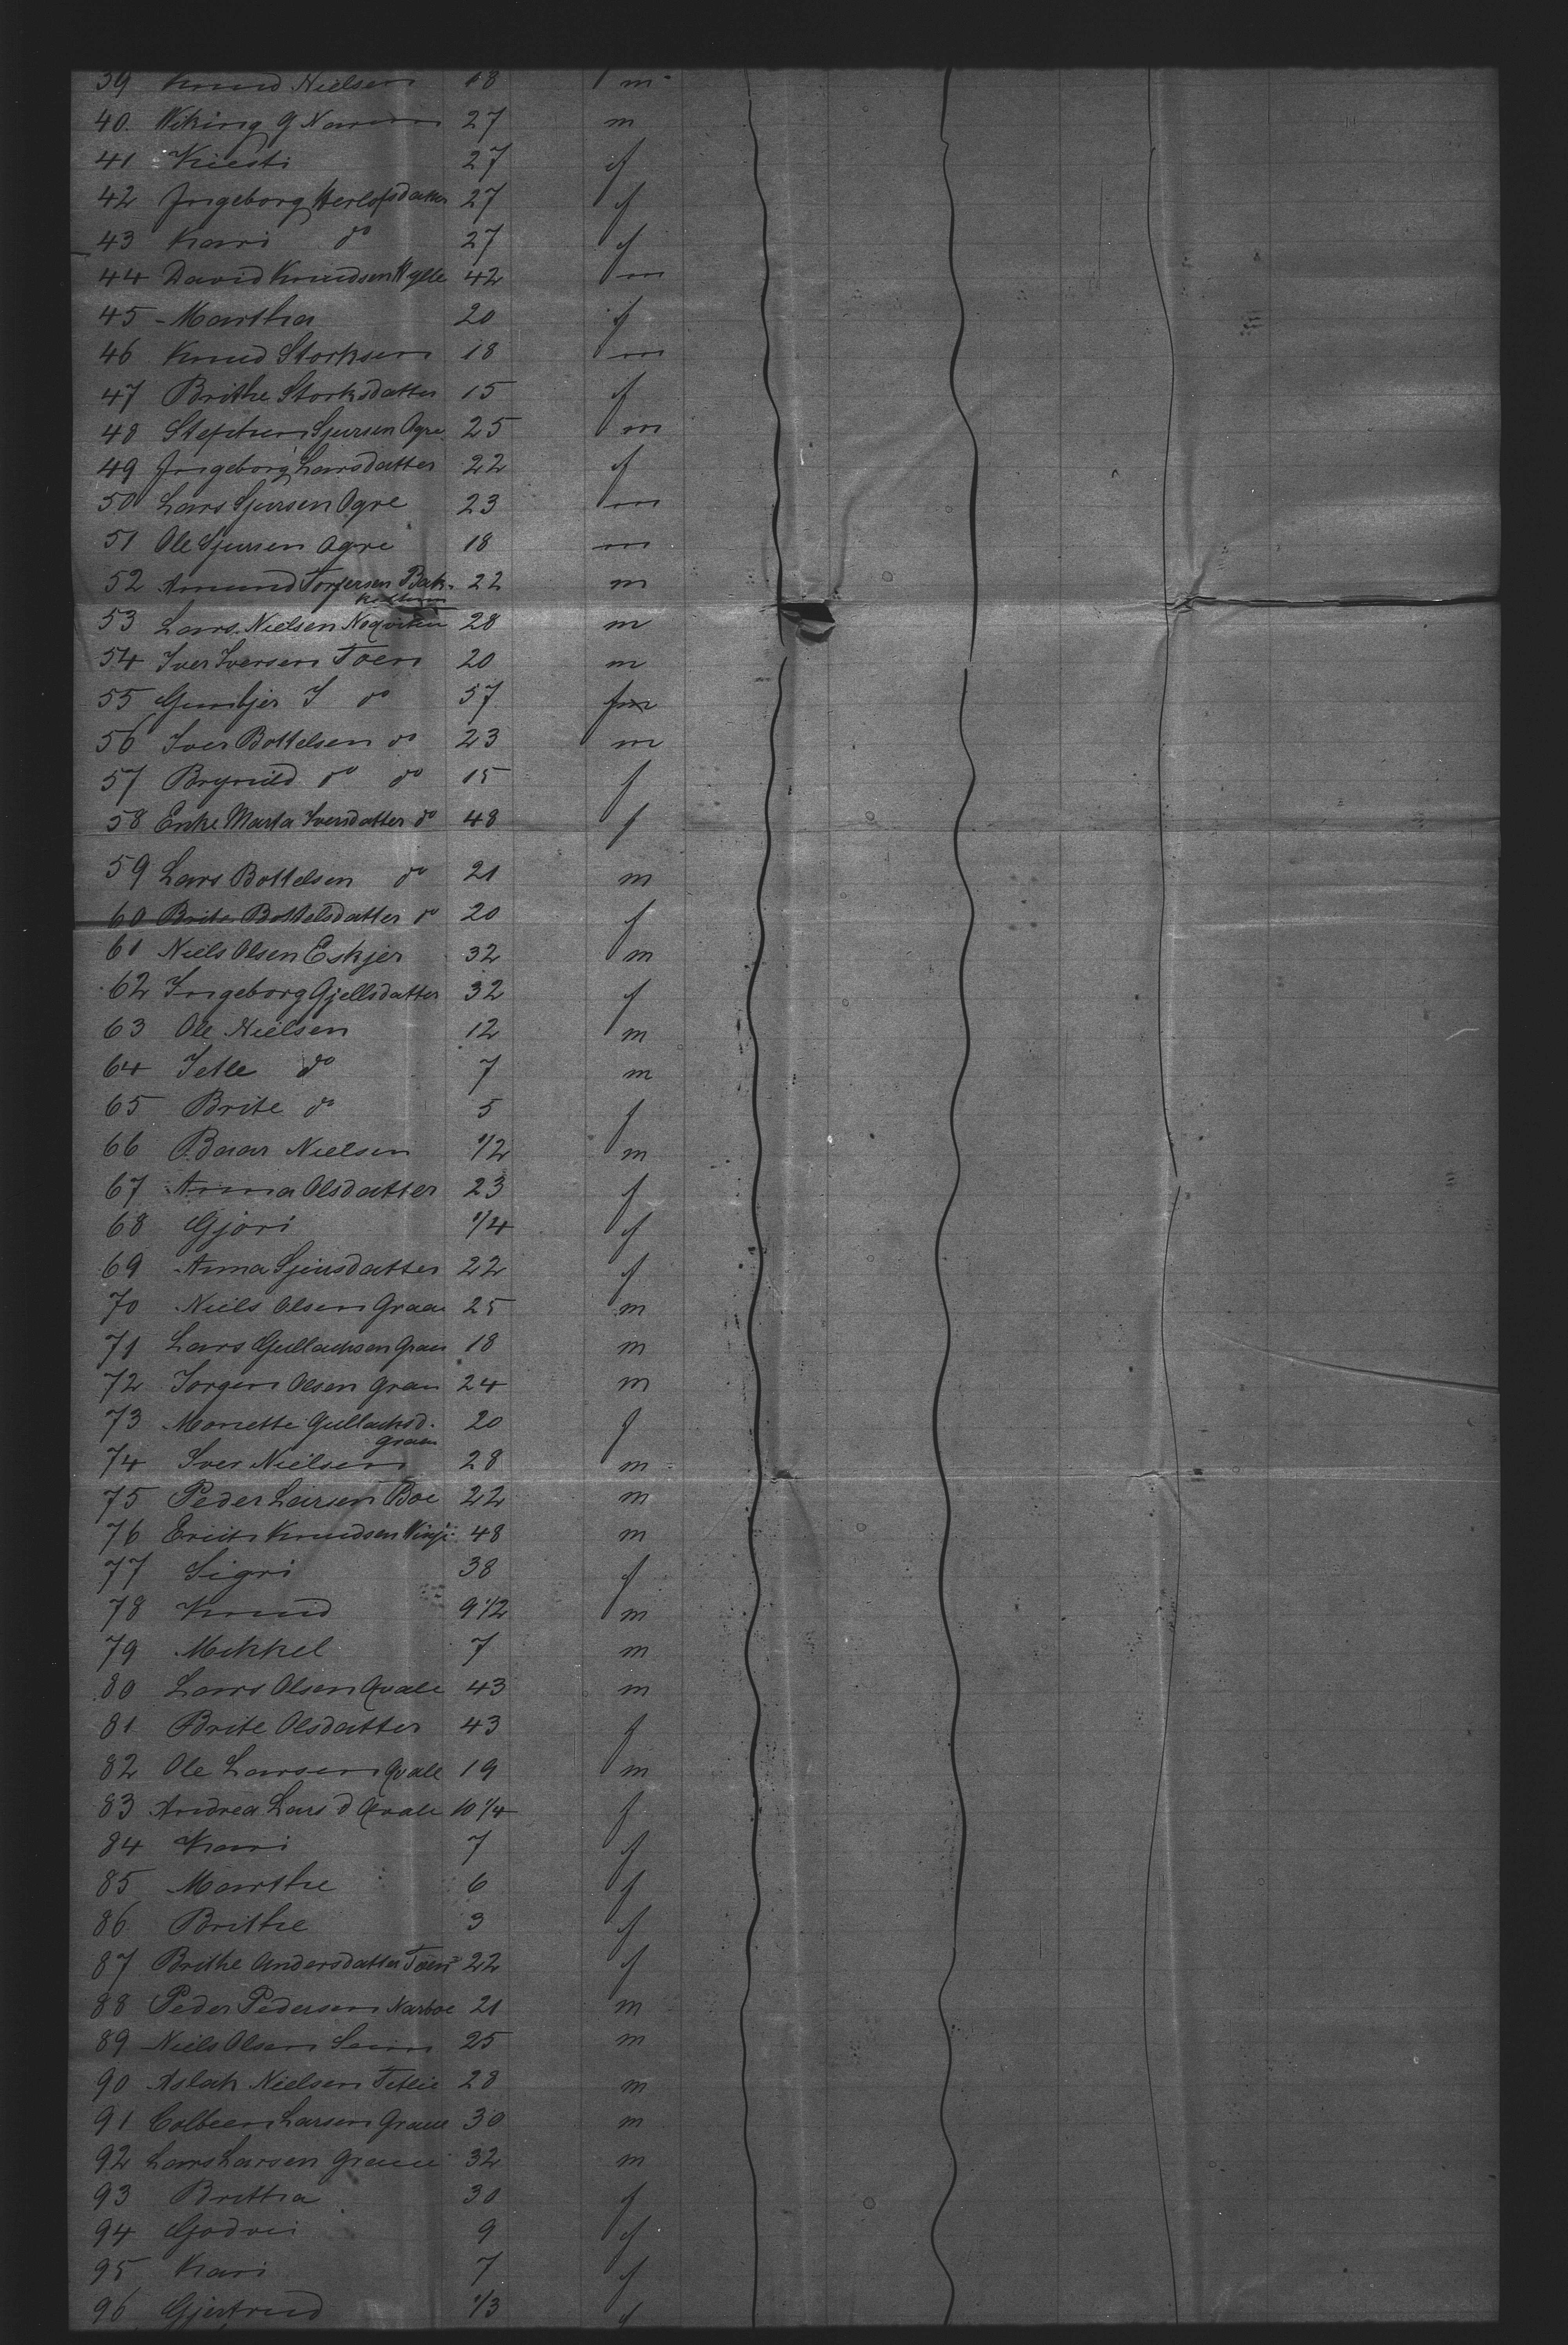 39 Knud Nielsen 18 m
40. Wiking G 27 m
41 Kiesti 27 f
42 Ingeborg Herlofsdatter 27 f
43 Kari do 27 f
44 David Knudsen Hylle 42 m
45 Martha 20 f
46 Knud Storksen 18 m
47 Brithe Storksdatter 15 f
48 Stephen Sjursen Ogre 25 m
49 Ingeborg Larsdatter 22 f
50 Lars Sjursen Ogre 23 m
51 Ole Sjursen Ogre 18 m
52 Amund Torgersen Bak- 22 m
53 Lars Nielsen 28 m
54 Iver Iversen Toen 20 m
55 Gunbjer I do 57 f
56 Iver Bottelsen do 23 m
57 Brynild do do 15 f
58 Enke Marta Iversdatter do 48 f
59 Lars Bottelsen do 21 m
60 Brite Bottelsdatter do 20 f
61 Niels Olsen Eskjer 32 m
62 Ingeborg Gjellsdatter 32 f
63 Ole Nielsen 12 m
64 Jetle do 7 m
65 Brite do 5 f
66 Baar Nielsen 1/2 m
67 Anna Olsdatter 23 f
68 Gjöri 1/4 f
69 Anna Sjursdatter 22 f
70 Niels Olsen Graae 25 m
71 Lars Gullacksen Grau 18 m
72 Jorgen Olsen Grau 24 m
73 Mariette Gullacksd. 20 f
Graae
74 Iver Nielsen 28 m
75 Peder Larsen Boe 22 m
76 Erick Knudsen Winje 48 m
77 Sigri 38 f
78 Knud 9 1/2 m
79 Mikkel 7 m
80 Lars Olsen Qvale 43 m
81 Brite Olsdatter 43 f
82 Ole Larsen Qvale 19 m
83 Andrea Lars d Qvale 10 1/4 f
84 Kari 7 f
85 Marthe 6 f
86 Brithe 3 f
87 Brithe Andersdatter Toen 22 f
88 Peder Pedersen Narboe 21 m
89 Niels Olsen Seim 25 m
90 Aslak Nielsen Tetlie 28 m
91 Colbeen Larsen Graue 30 m
92 Lars Larsen Graue 32 m
93 Brittha 30 f
94 Godvei 9 f
95 Kari 7 f
96 Gjertrud 1/3 f